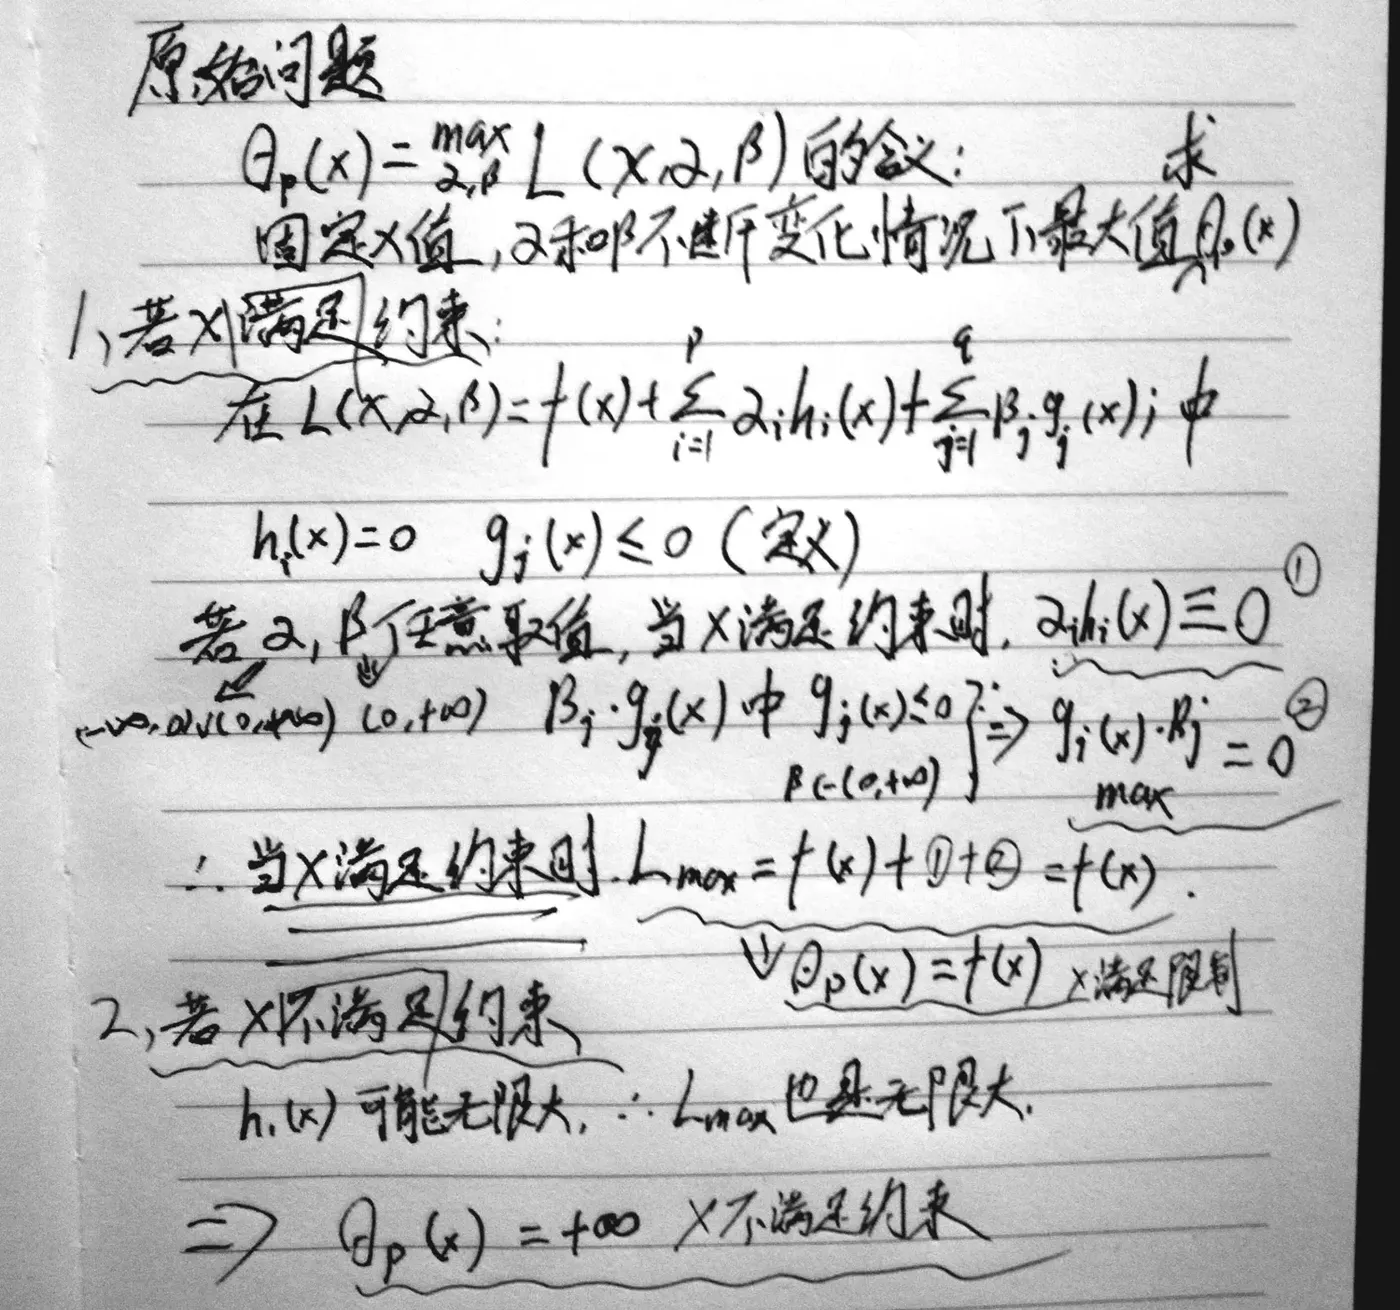 原始问题
θₚ(x) = max α,β L(x,α,β) 的含义: 求
固定x值, α和β不断变化情况下最大值θₚ(x)
1、若x满足约束:
在 L(x,α,β) = f(x) + ∑ᵢ₌₁ᵖ αᵢhᵢ(x) + ∑ⱼ₌₁^q βⱼgⱼ(x); 中
hᵢ(x)=0 gⱼ(x)≤0 (定义)
若α, β任意取值, 当x满足约束时. αᵢhᵢ(x)≡0 ①
(0,+∞) βⱼ·gⱼ(x) 中 gⱼ(x)≤0 } ⇒ gⱼ(x)·βⱼ = 0 ②
β∈(0,+∞) max
∴ 当x满足约束时. Lmax = f(x)+①+② = f(x).
⇓ θₚ(x) = f(x) x满足限制
2、若x不满足约束
hᵢ(x) 可能无限大, ∴ Lmax 也是无限大.
⇒ θₚ(x) = +∞ x不满足约束